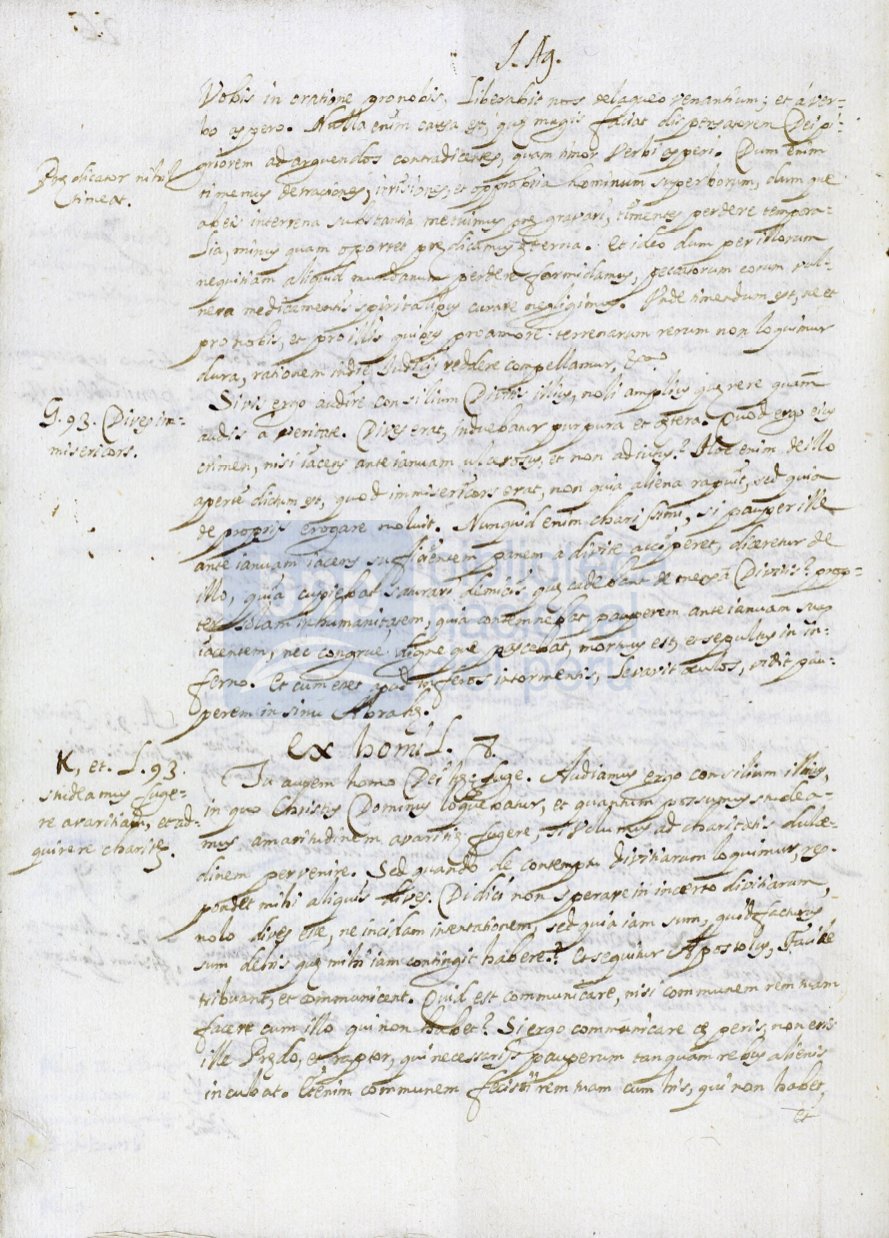 S. Ag.
Vobis in oratione pro nobis. Liberabit nos de laqueo venantium; et á ver-
bo aspero. Nulla enim causa est, quę magis faciat dispensatorem Dei pi-
griorem ad arguendos contradicentes, quam timor verbi asperi. Dum enim
Prędicator nihil
timeat.
timemus detractiones, irrisiones, et opprobria hominum superborum, dum que
ab eis in terrena substantia metuimus prę gravari, timentes perdere tempora-
lia, minus quam oportet prędicamus ęterna. Et ideo dum per illorum
nequitiam aliquid mundanum perdere formidamus, peccatorum eorum vul-
nera medicamentis spiritalibus curare negligimus. Unde timendum est, ne et
pro nobis, et pro illis quibus pro amore terrenarum rerum non loquimur
dura, rationem in die Judicij reddere compellamur, &c.
G. 93. Dives im-
misericors.
Si vis ergo audire consilium Divitis illius, noli amplius quęrere quam
audis a veritate. Dives erat, induebatur purpura et cętera. Quod ergo eius
crimen, nisi iacens ante ianuam ulcerosus, et non adiutus? Hoc enim de illo
aperte dictum est, quod immisericors erat, non quia aliena rapuit, sed quia
de proprijs erogare noluit. Nunquid enim charissimi, si pauper ille
ante ianuam iacens sufficientem panem a divite acciperet, diceretur de
illo, quia cupiebat saturari de micis, quę cadebant de mensa Divitis? prop-
ter solam inhumanitatem, quia contemnebat pauperem ante ianuam suam
iacentem, nec congrue digne que pascebat, mortuus est, et sepultus in in-
ferno. Et cum esset apud inferos in tormentis, levavit oculos, vidit pau-
perem in sinu Abrahę.
ex homil. 7.
K, et. L. 93.
studeamus fuge-
re avaritiam, et ad-
quirere charitę.
Tu autem homo Dei hęc fuge. Audiamus ergo consilium illius,
in quo Christus Dominus loquebatur, et quantum possumus studea-
mus amaritudinem avaritię fugere, si volumus ad charitatis dulce-
dinem pervenire. Sed quando de contemptu divitiarum loquimur, res-
pondet mihi aliquis dives. Didici non sperare in incerto divitiarum,
nolo dives esse, ne incidam in tentationem, sed quia iam sum, quid facturus
sum de his quę mihi iam contingit habere? Et sequitur Apostolus, Facile
tribuant, et communicent. Quid est communicare, nisi communem rem tuam
facere cum illo qui non habet? Si ergo communicare cęperis, non eris
ille Prędo, et raptor, qui necessarijs pauperum tanquam rebus alienis
incubat. Etenim communem fecisti rem tuam cum his, qui non habet,
et